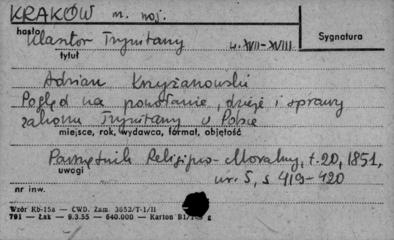 KRAKÓW m. woj.
hasło
Klasztor Trynitarzy w. XVII-XVIII
Sygnatura
tytuł
Adrian Krzyżanowski
Pogląd na powstanie, dzieje i sprawy
zakonu Trynitarzy w Polsce
miejsce, rok, wydawca, format, objętość
Pamiętnik Religijno-Moralny, t. 20, 1851,
uwagi
nr. 5, s 419-420
nr inw.
Wzór Kb-15a — CWD. Zam. 3652/T-1/II
791 — Łak — 9.3.55 — 640.000 — Karton B1/ g